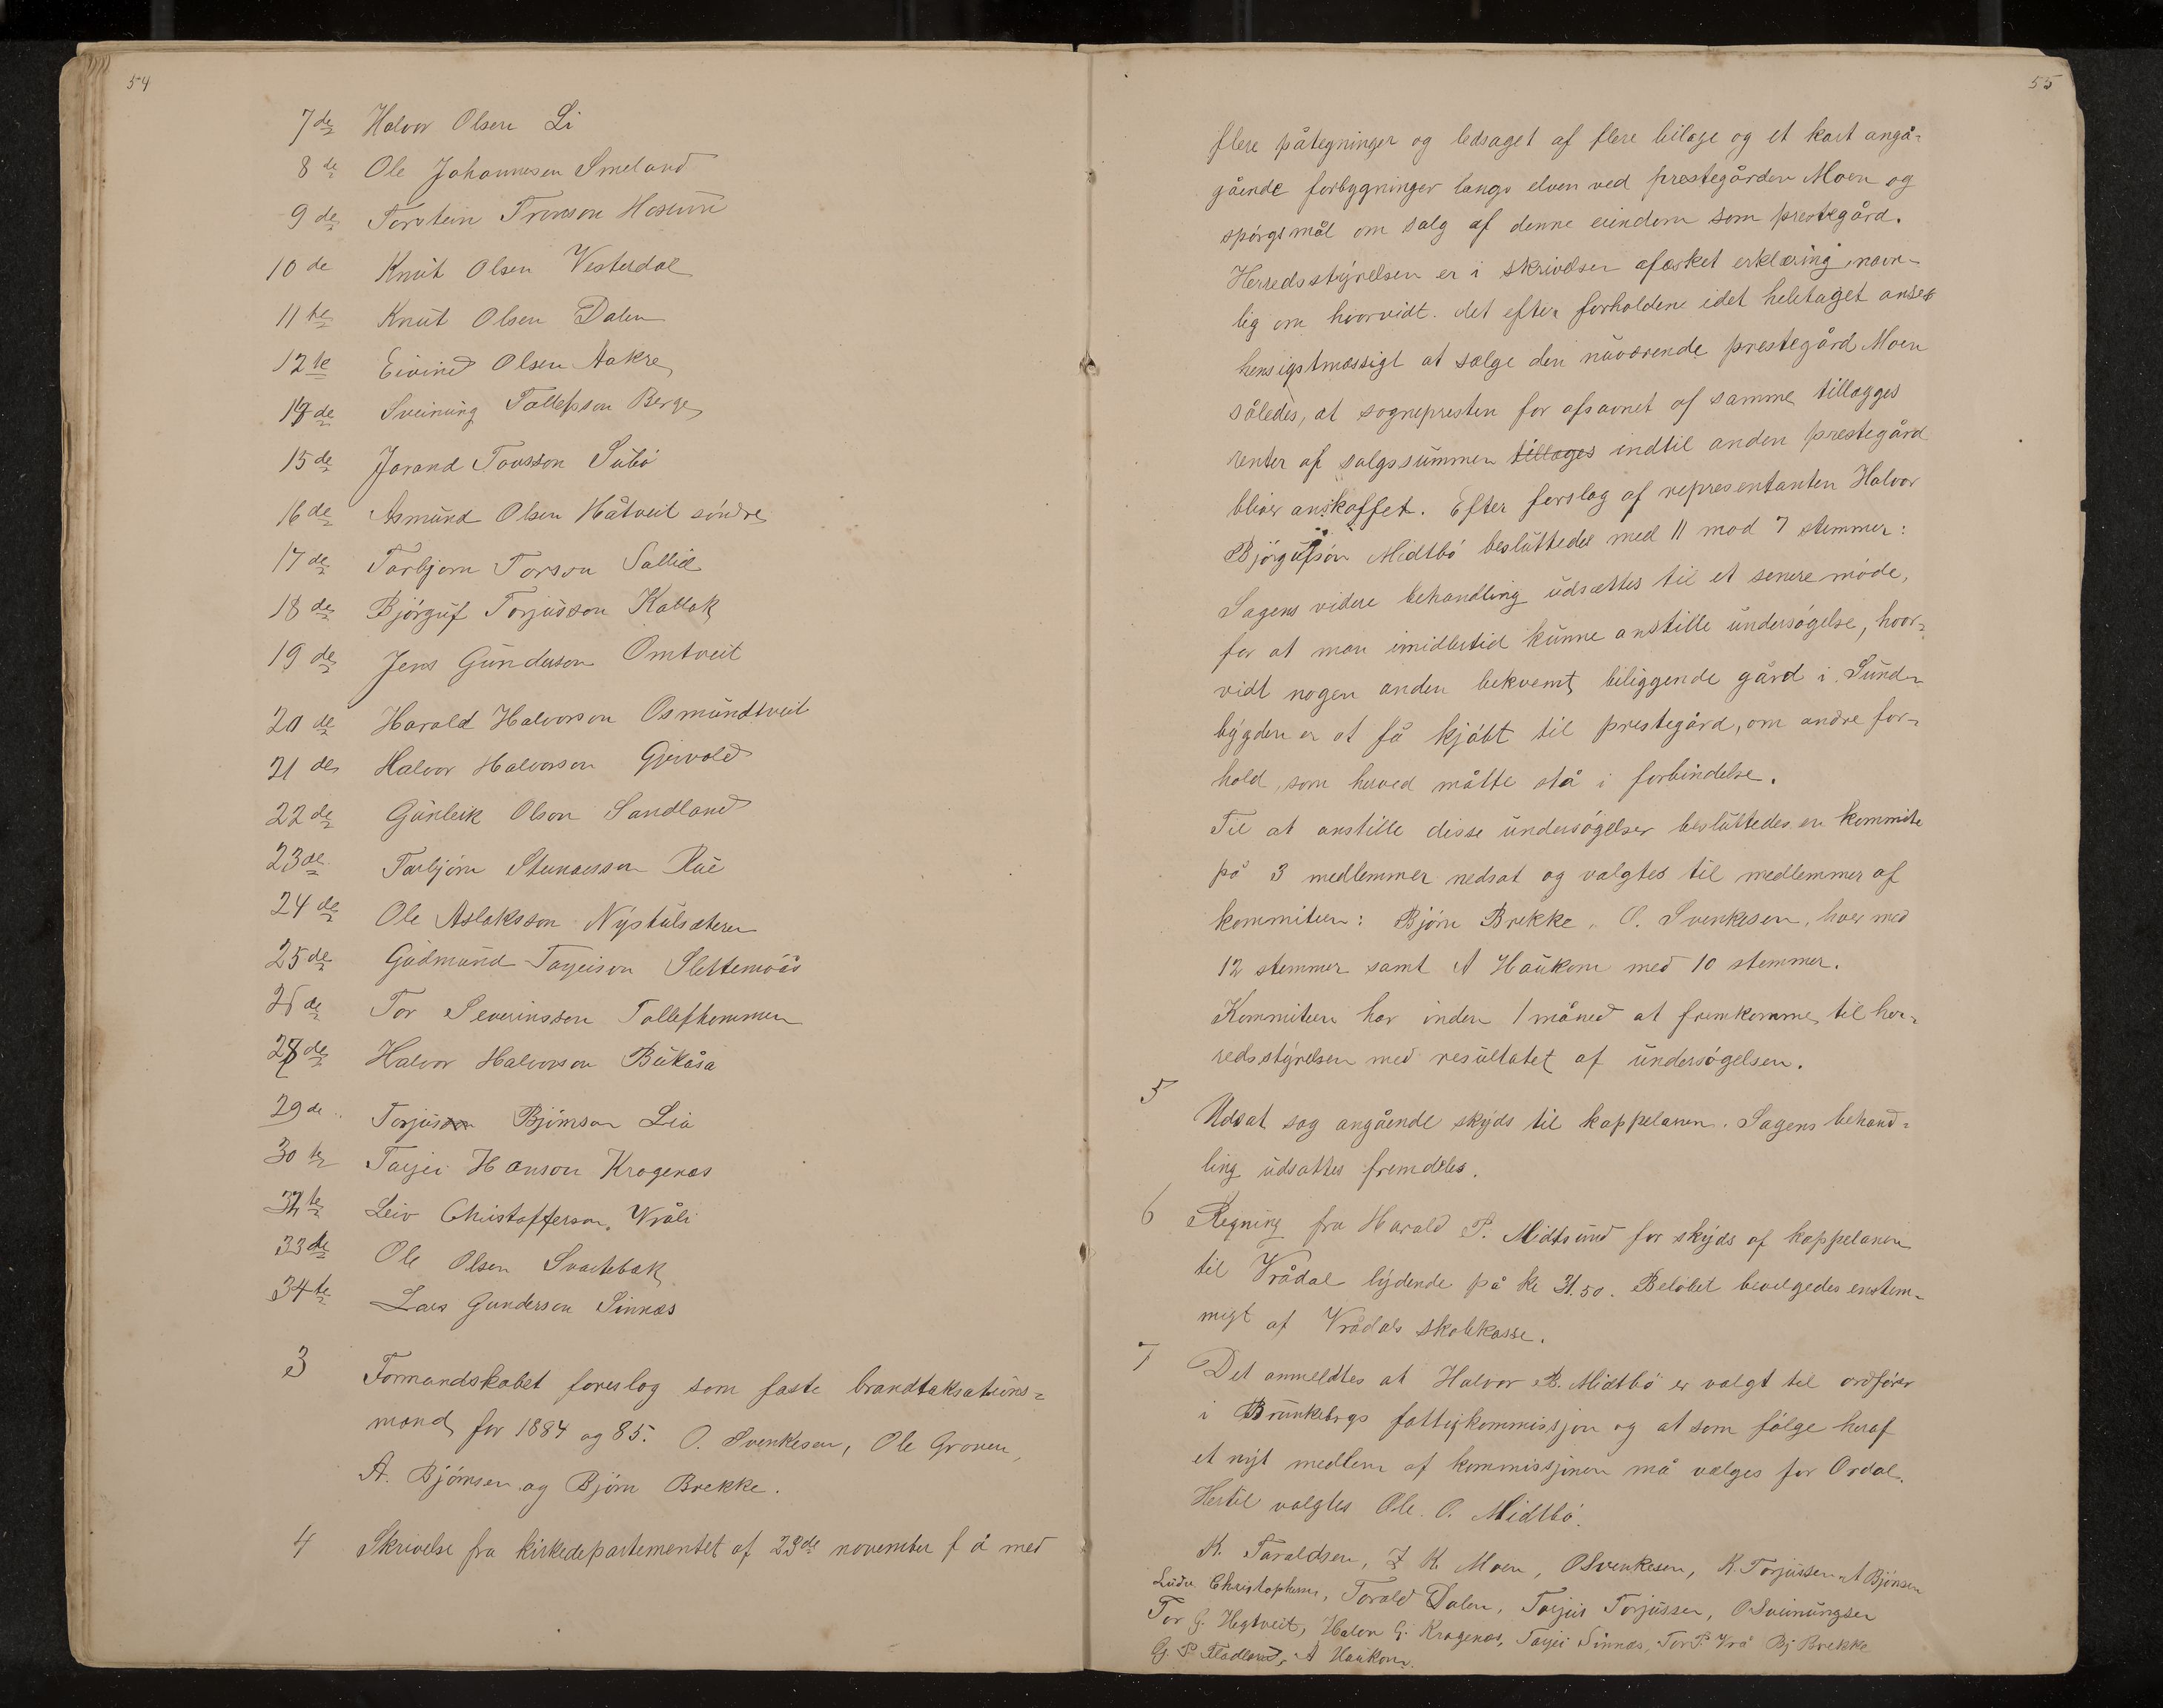 54
7de Halvor Olsen Li
8de Ole Johannesen Smeland
9de Torstein Tronson Hosum
10de Knut Olsen Vesterdal
11te Knut Olsen Dalen
12te Eivind Olsen Aakre
de Sveinung Tallefsson Berge
15de Jorand Tovsson Subö
16de Asmund Olsen Håtveit söndre
17de Tarbjorn Torson Sallid
18de Björguf Torjusson Kallak
19de Jens Gunderson Omtveit
20de Harald Halvorson Osmundtveit
21de Halvor Halvorson Gjervold
22de Gunleik Olson Sandland
23de Tarbjörn Steinarsson Rue
24de Ole Aslaksson Nystulsæteren
25de Gudmund Tarjeison Slettemoås
de Tor Severinsson Tallefhommen
de Halvor Halvorson Bukåsa
29de Torjus Björnson Lia
30te Tarjei Hanson Kragenæs
te Leiv Christofferson Vråli
33de Ole Olsen Svartebæk
34te Lars Gunderson Sinnæs
3 Formandskabet foreslog som faste brandtaksations=
mænd for 1884 og 85. O. Svenkesen, Ole Groven,
A. Björnsen og Björn Brekke.
4 Skrivelse fra kirkedepartementet af 23de november f å med
55
flere påtegninger og ledsaget af flere bilage og et kart angå=
gående forbygninger langs elven ved prestegården Moen og
spörgsmål om salg af denne eiendom som prestegård.
Herredsstyrelsen er i skrivelsen afæsket erklæring navn-
lig om hvorvidt det efter forholdene idet heletaget anses
hensigtmæssigt at sælge den nuværende prestegård Moen
således, at sognepresten for afsavnet af samme tillægges
renter af salgssummen tillæges indtil anden prestegård
bliver anskaffet. Efter forslag af representanten Halvor
Björgufsön Midtbö besluttedes med 11 mod 7 stemmer:
Sagens videre behandling udsættes til et senere möde,
for at man imidlertid kunne anstille undersögelse, hvor=
vidt nogen anden bekvemt beliggende gård i Sund-
bygden er at få kjöbt til prestegård, om andre for-
hold, som herved måtte stå i forbindelse.
Til at anstille disse undersögelser besluttedes en kommite
på 3 medlemmer nedsat og valgtes til medlemmer af
kommiteen: Björn Brekke, O. Svenkesen, hver med
12 stemmer samt A Haukom med 10 stemmer.
Kommiteen har inden 1 måned at fremkomme til her=
redsstyrelsen med resultatet af undersögelsen.
5 Udsat sag angående skyds til kappelanen. Sagens behand=
ling udsattes fremdeles.
6 Regning fra Harald P. Midtsund for skyds af kappelanen
til Vrådal lydende på kr 31.50. Belöbet bevilgedes enstem-
migt af Vrådals skolekasse.
7 Det anmeldtes at Halvor B. Midtbö er valgt til ordförer
i Brunkebergs fattigkommissjon og at som fölge heraf
et nyt medlem af kommissjonen må vælges for Ordal.
Hertil valgtes Ole. O. Midtbö.
K. Taraldsen, K. Moen, O Svenkesen, K. Torjussen, A Björnsen
Christophersen, Torald Dalen, Tarjei Torjussen, O Sveinungsen
Tor G. Hegtveit, Halvor G. Kragenæs, Tarjei Sinnæs, Tor P. Vrå Bj Brekke
G. P Fladland, A Haukom.